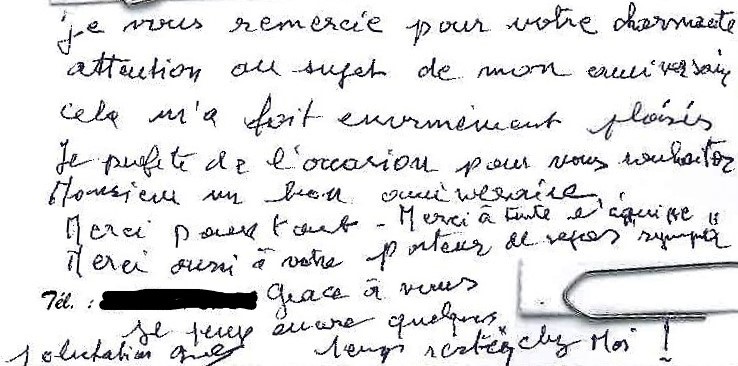 je vous remercie pour votre charmante
attention au sujet de mon anniversaire
cela m'a fait enormément plaisir
Je profite de l'occasion pour vous souhaiter
Monsieur un bon anniversaire
Merci pour tout - Merci à toute l'équipe
Merci aussi à votre porteur de repas "sympa"
Tél. : Grace à vous
je peux encore quelques
temps rester chez Moi !